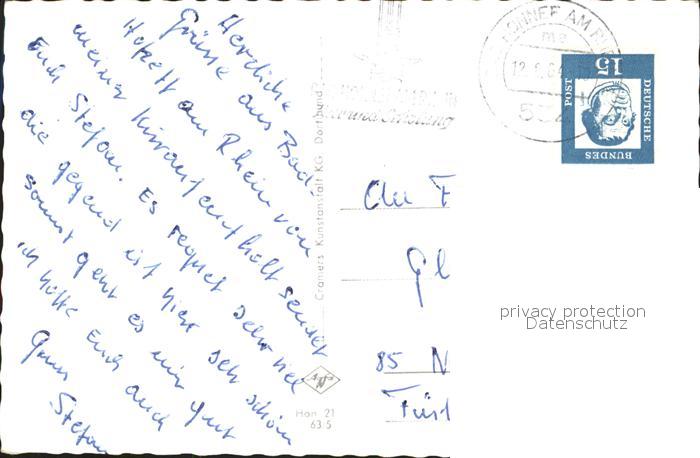 Herzliche
Grüße aus Bad-
Honeff am Rhein von
meinem Kuraufenthalt sendet
Euch Stefan. Es regnet sehr viel
die gegend ist hier seh schön
sonnst geht es mir gut
ich hoffe Euch auch
Gruss
Stefan
Cramers Kunstanstalt KG Dortmund
Hon 21
63/5
HONNEF AM RHEIN
12.6.64
An F
Gl
85 N
Fürt
15
POST
DEUTSCHE
BUNDES
privacy protection
Datenschutz